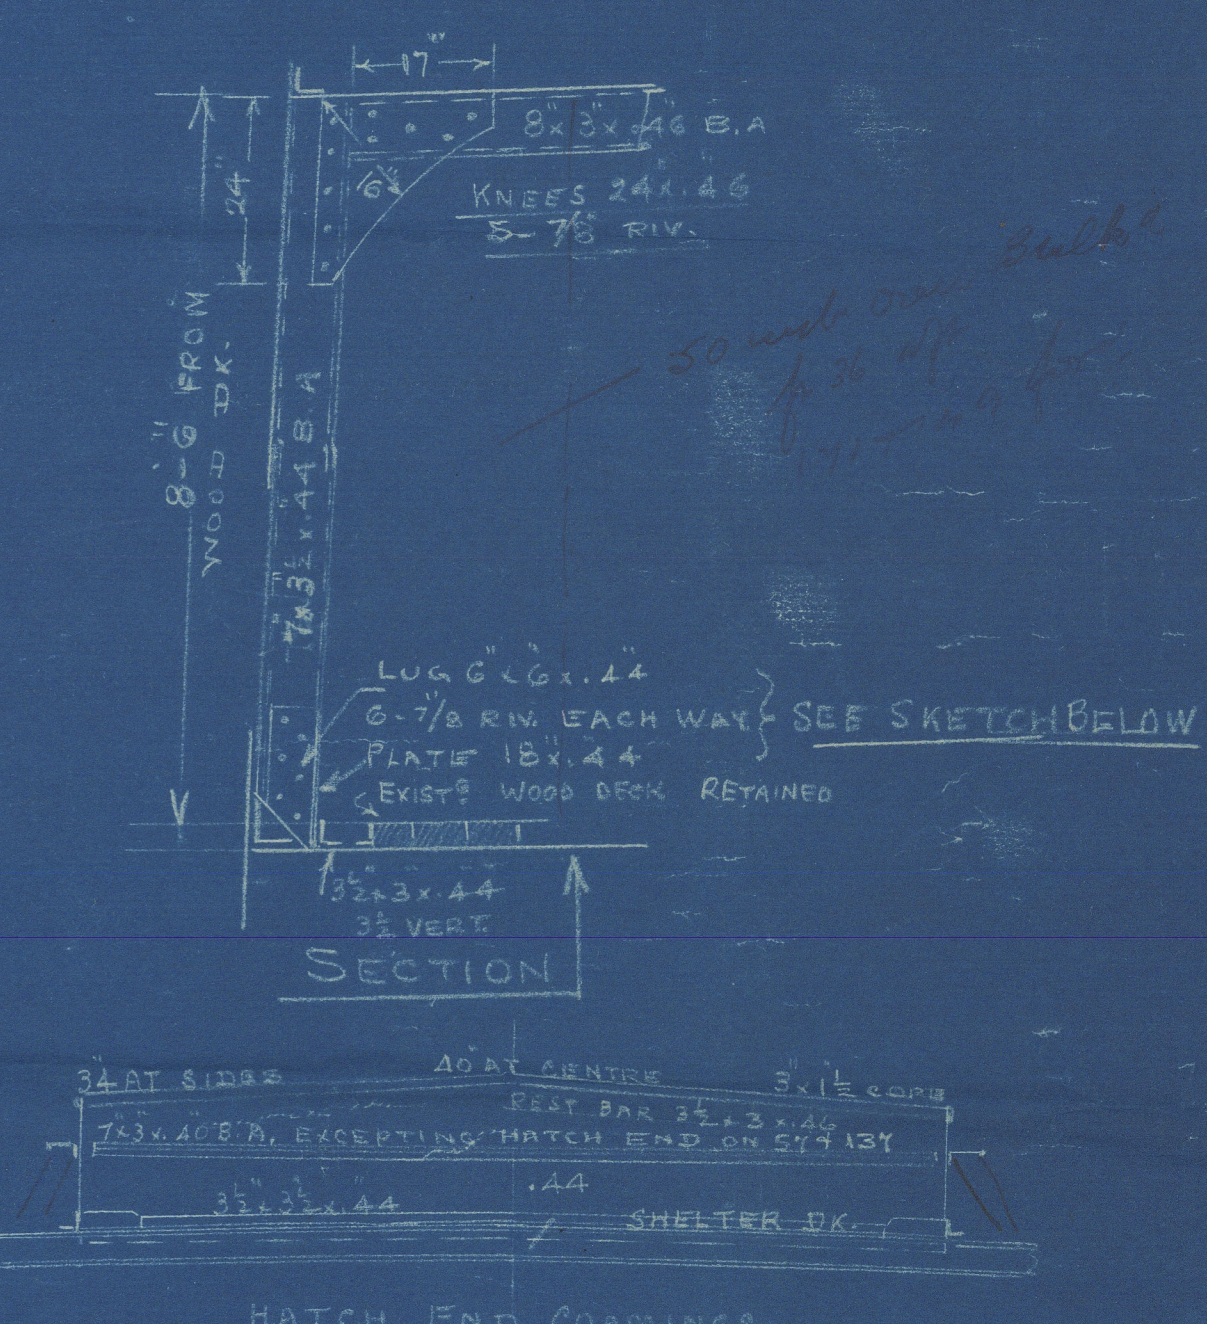 17"
8" x 3" x .46 B.A
24"
6"
KNEES 24 x .46
5- 7/8" RIV.
8'-6" FROM
WOOD DK.
7" x 3½" x .44 B.A
50
LUG 6" x 6" x .44"
6-7/8" RIV. EACH WAY
SEE SKETCH BELOW
PLATE 18" x .44
EXISTG WOOD DECK RETAINED
3½" x 3" x .44
3½ VERT.
SECTION
34" AT SIDES
40" AT CENTRE
3" x 1½ COPE
REST BAR 3½ x 3 x .46
7" x 3" x .40" B.A. EXCEPTING HATCH END ON 57 & 137
.44
3½" x 3½" x .44"
SHELTER DK.
HATCH END COAMINGS